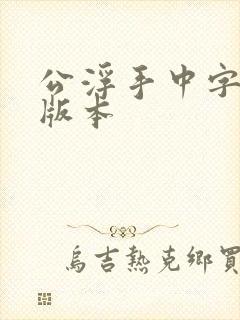 公浮手中字
版本
烏吉熱克鄉買